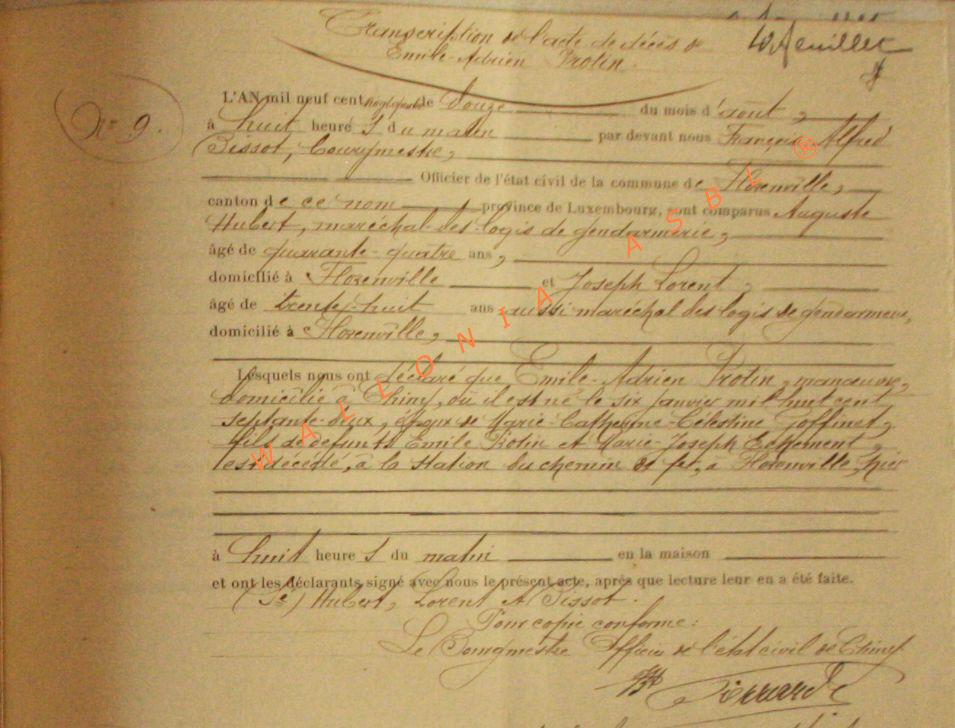 Transcription de l'acte de décès de
Emile-Adrien Protin.
10e feuillet
No 9.
L'AN mil neuf cent le douze du mois d'août,
à huit heures du matin par devant nous François Alfred
Pissot, bourgmestre,
Officier de l'état civil de la commune de Florenville,
canton de ce nom province de Luxembourg, sont comparus Auguste
Hubert, maréchal des logis de gendarmerie,
âgé de quarante-quatre ans,
domicilié à Florenville et Joseph Lorent,
âgé de trente-huit ans aussi maréchal des logis de gendarmerie,
domicilié à Florenville,
Lesquels nous ont déclaré que Emile-Adrien Protin, manoeuvre,
domicilié à Chiny, où il est né le six janvier mil huit cent
septante-deux, époux de Marie-Catherine-Célestine Goffinet,
fils de défunts Emile Protin et Marie-Joseph
est décédé, à la station du chemin de fer, à Florenville, hier
à huit heures du matin en la maison
et ont les déclarants signé avec nous le présent acte, après que lecture leur en a été faite.
(Sé) Hubert, Lorent et Pissot.
Pour copie conforme:
Le Bourgmestre Officier de l'état civil de Chiny
WALLONIA ASBL ®